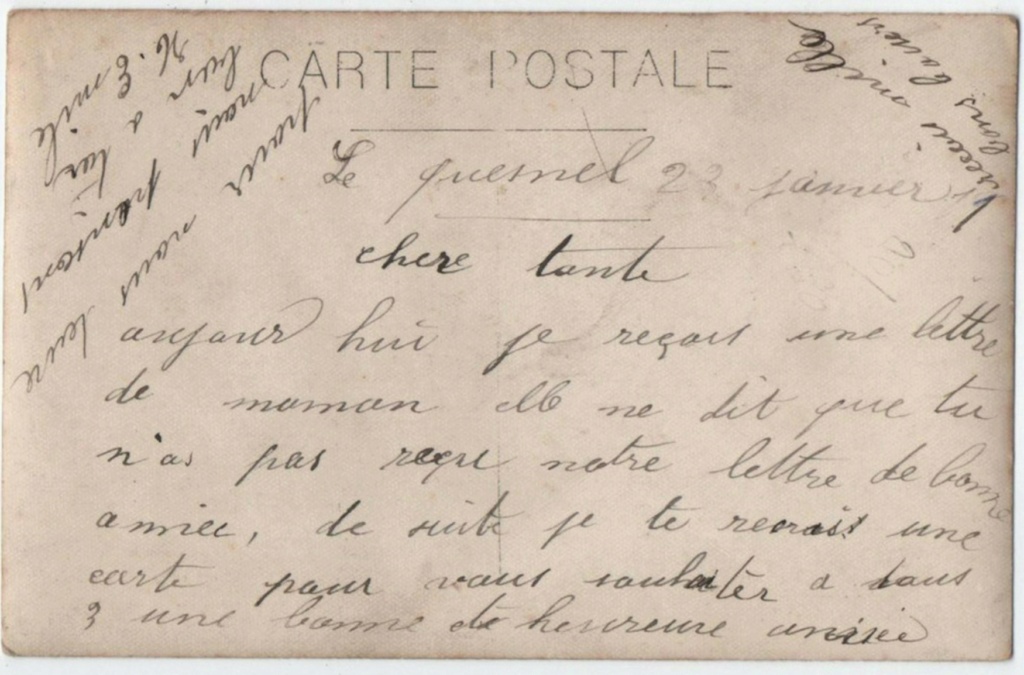 CARTE POSTALE
Le quesnel 23 janvier
chere tante
aujour hui je reçois une lettre
de moman elle ne dit que tu
n'as pas reçu notre lettre de bonne
anniee, de suite je te recrist une
carte pour vous souhaiter a tous
3 une bonne et heureuse annee
pour nous
nous pensont
bien a toi
H. Emile
recois mille
bons baisers